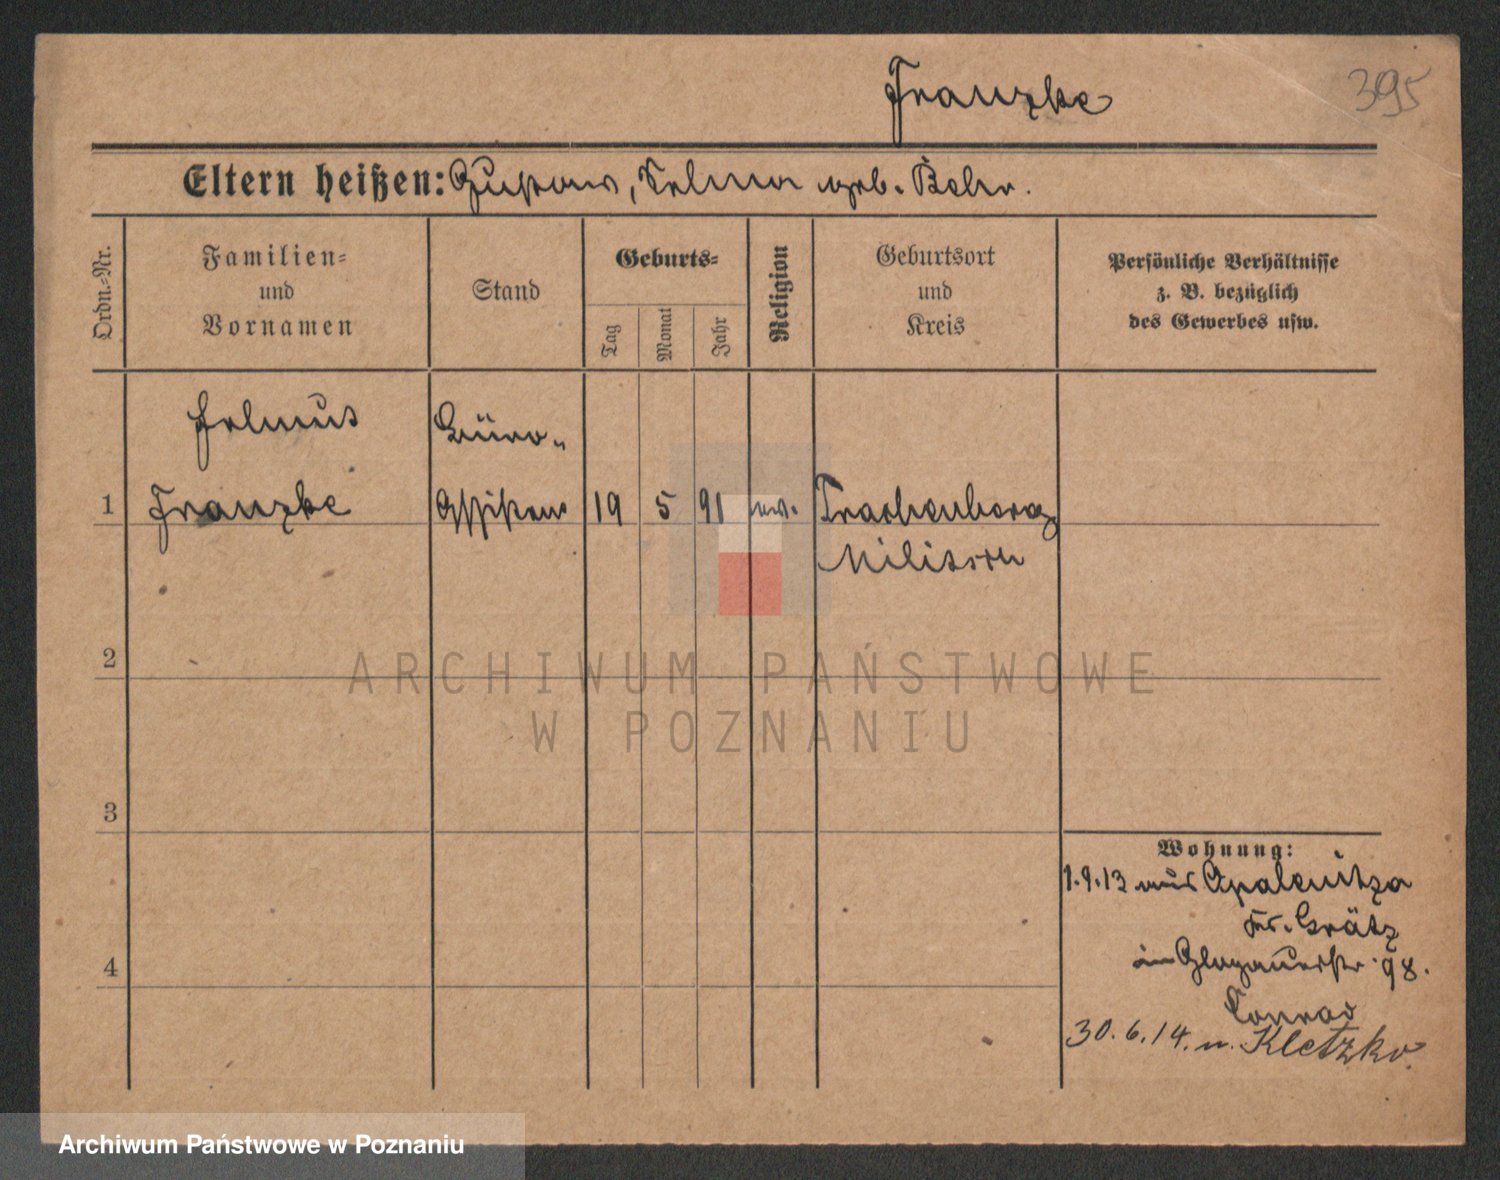 Franzke 395
Eltern heißen: Gustav, Selma geb. Behr.
Ordn.-Nr.
Familien-
und
Vornamen
Stand
Geburts-
Tag
Monat
Jahr
Religion
Geburtsort
und
Kreis
Persönliche Verhältnisse
z. B. bezüglich
des Gewerbes usw.
Helmut
Büro-
1 Franzke Assistent 19 5 91 ev. Trachenberg
Militsch
2
3
4
Wohnung:
1.9.13 aus Opalenitza
Kr. Grätz
in Glogauerstr. 98.
Conrad
30.6.14. n. Kletzko.
ARCHIWUM PAŃSTWOWE
W POZNANIU
Archiwum Państwowe w Poznaniu